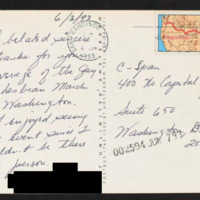 6/2/93
A belated sincere
thanks for your
coverage of the Gay
Lesbian March
Washington.
I enjoyed seeing
event since I
be there
person.
C-Span
400 N Capitol
Suite 650
Washington D
20